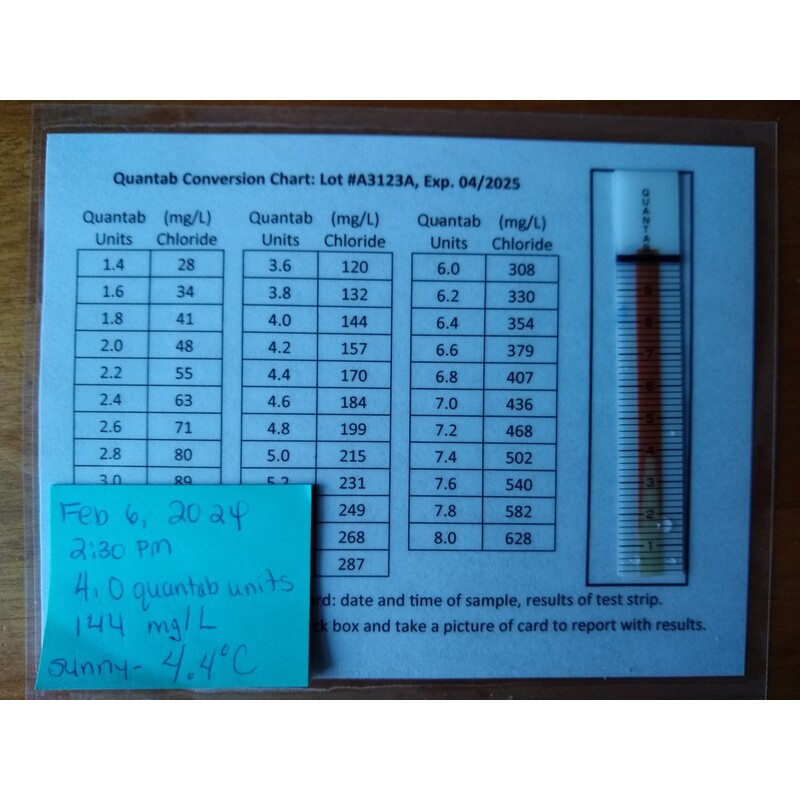 Quantab Conversion Chart: Lot #A3123A, Exp. 04/2025
Quantab (mg/L) Quantab (mg/L) Quantab (mg/L)
Units Chloride Units Chloride Units Chloride
1.4 28 3.6 120 6.0 308
1.6 34 3.8 132 6.2 330
1.8 41 4.0 144 6.4 354
2.0 48 4.2 157 6.6 379
2.2 55 4.4 170 6.8 407
2.4 63 4.6 184 7.0 436
2.6 71 4.8 199 7.2 468
2.8 80 5.0 215 7.4 502
3.0 89 5.2 231 7.6 540
249 7.8 582
268 8.0 628
287
rd: date and time of sample, results of test strip.
ck box and take a picture of card to report with results.
Feb 6, 2024
2:30 PM
4.0 quantab units
144 mg/L
sunny - 4.4°C
QUANTAB
9
8
7
6
5
4
3
2
1